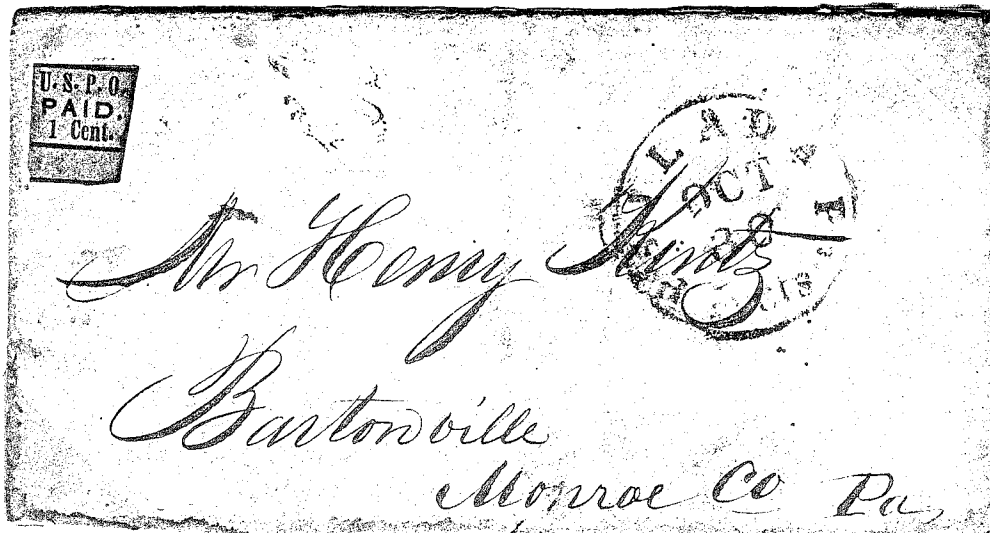 U.S.P.O.
PAID.
1 Cent.
LAD
OCT
Mr Henry Kintz
Bartonville
Monroe Co Pa,